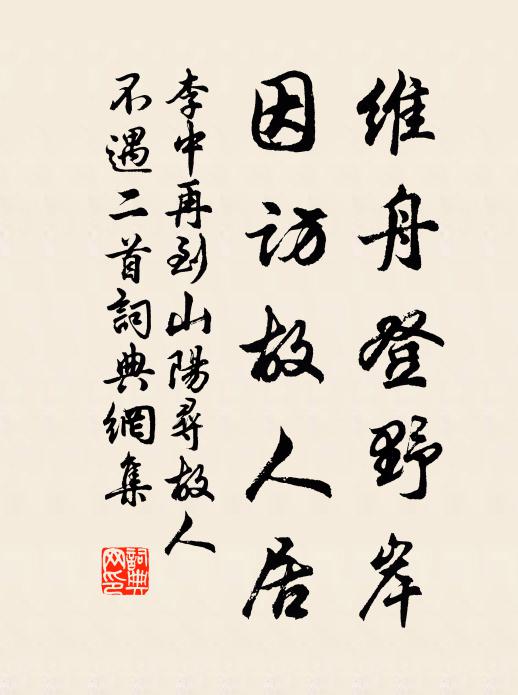 维舟登野岸
因访故人居
李中再到山陽尋故人
不遇二首詞典網集
詞典网印